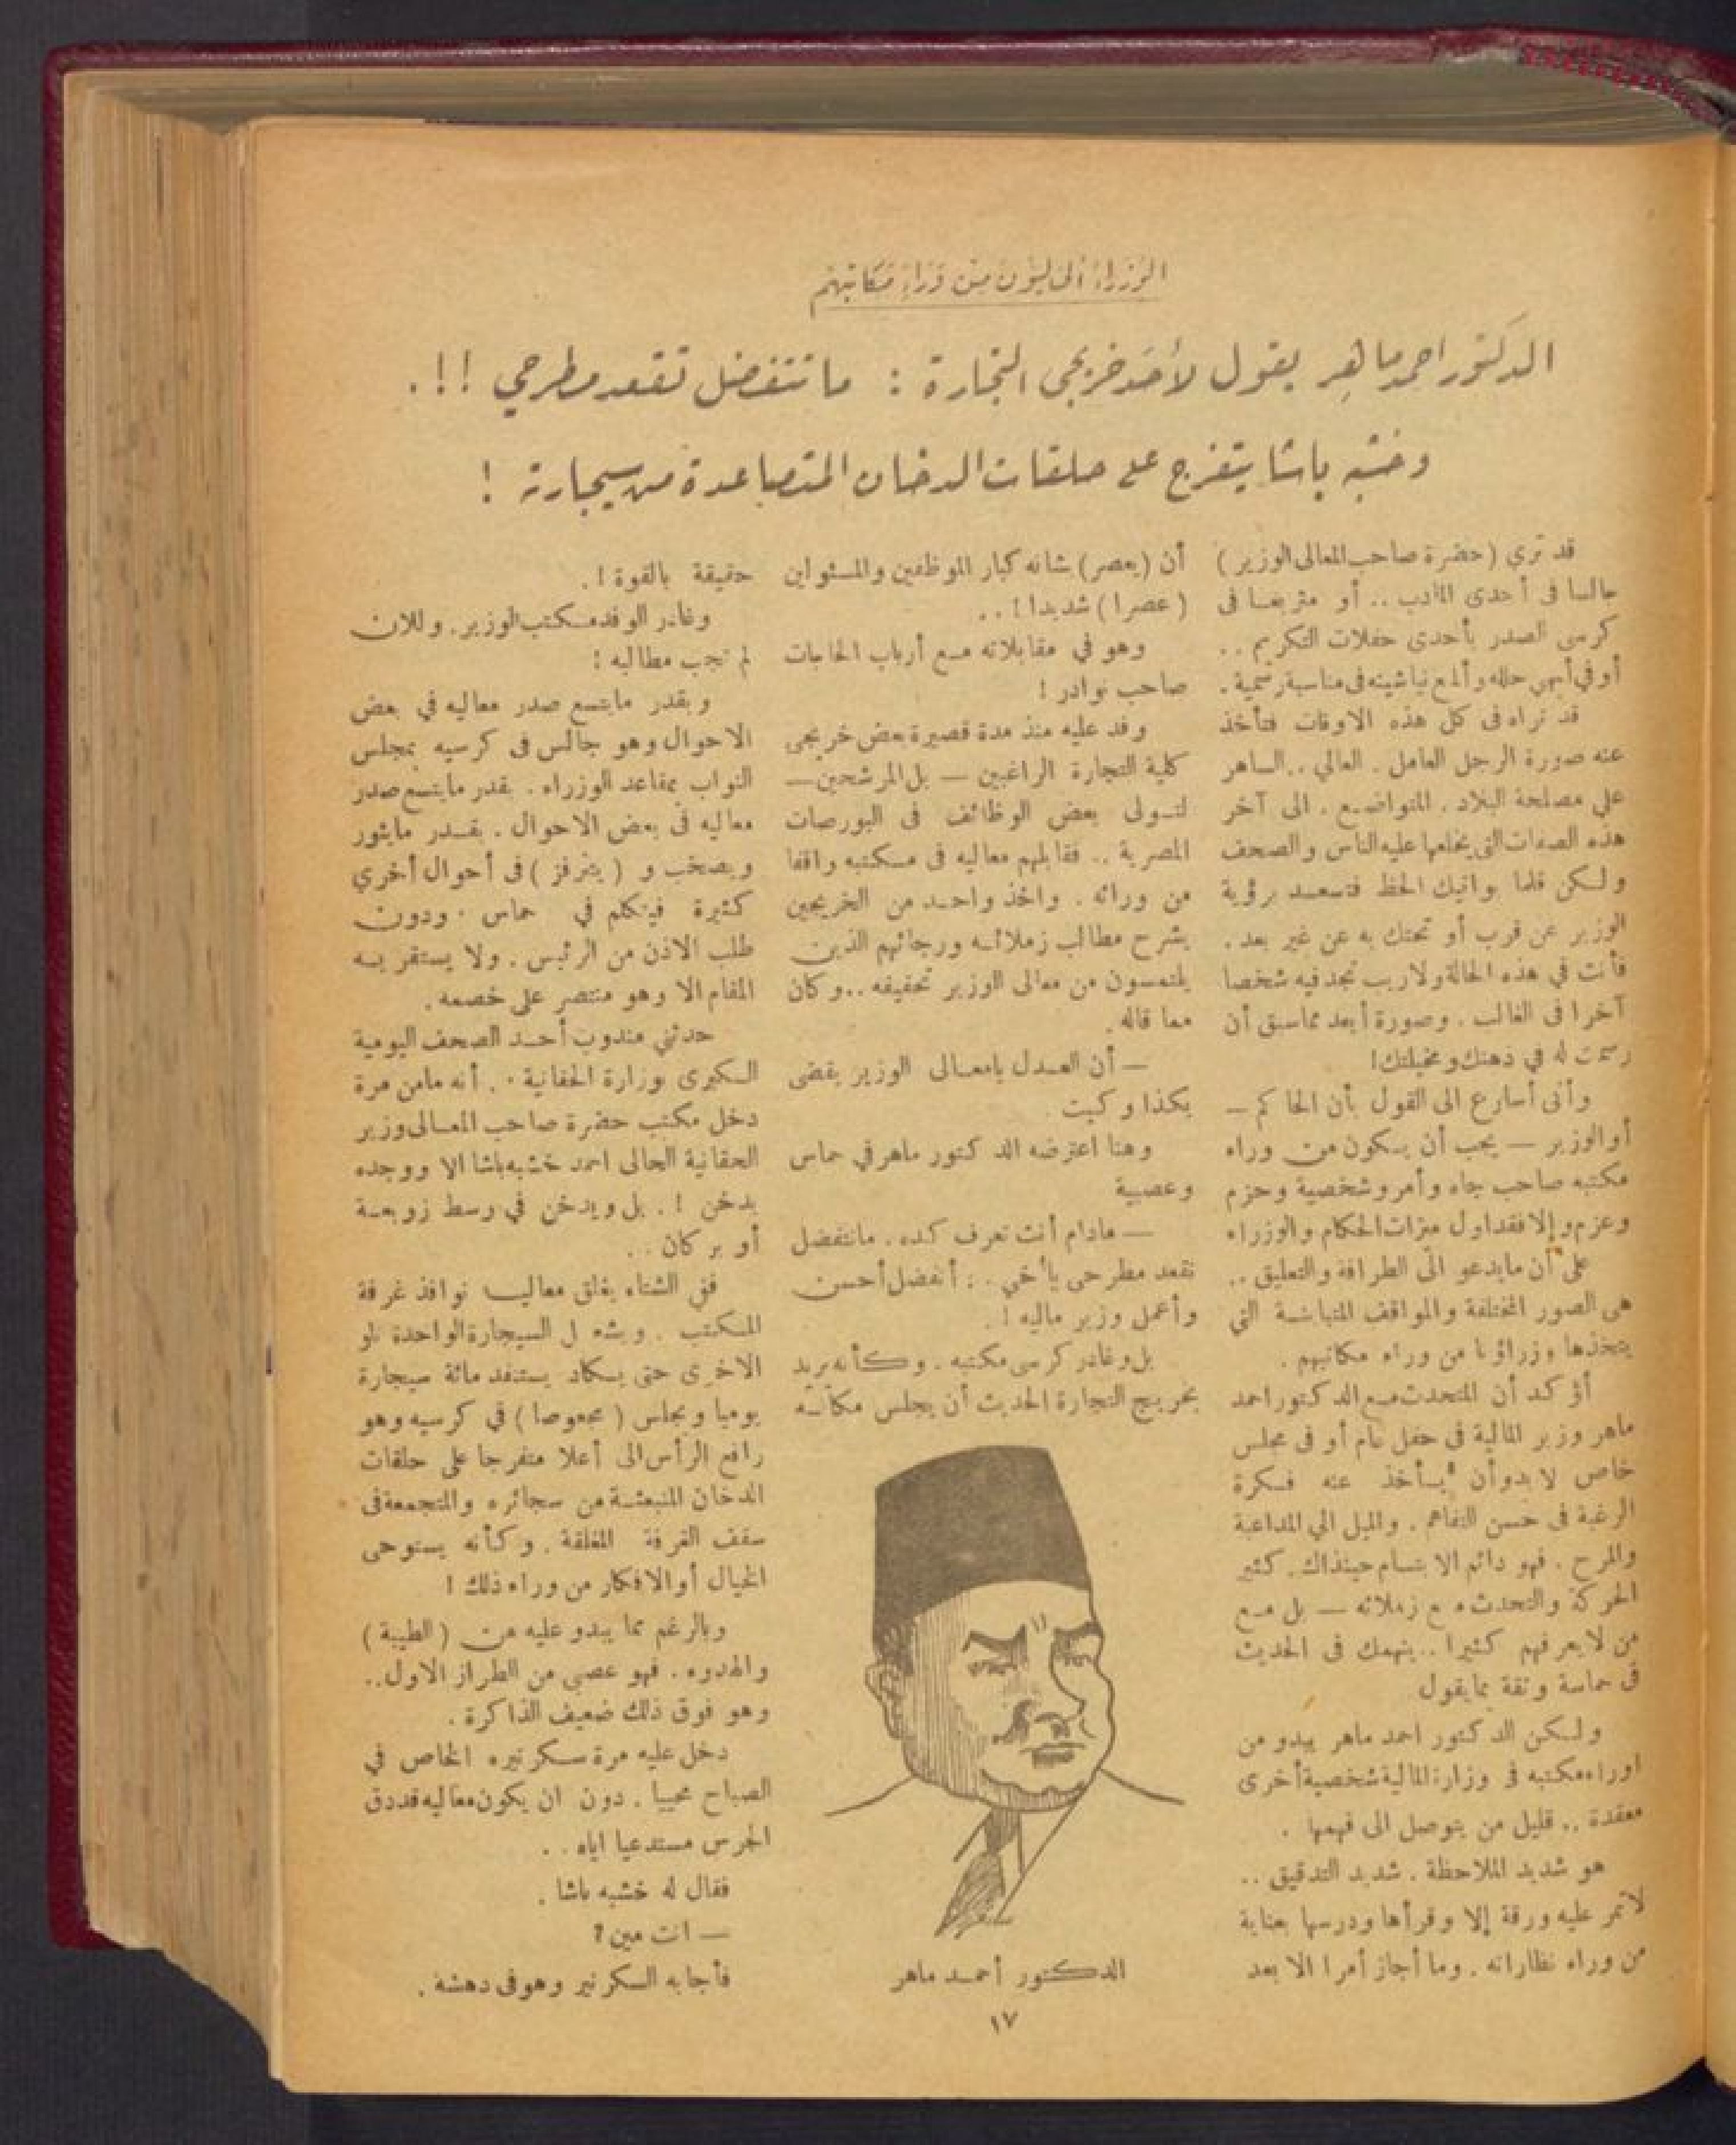 الوزراء الحاليون من وراء مكاتبهم
الدكتور احمد ماهر يقول لأحد خريجى التجارة : ما تتفضل تقعد مطرحي !! .
وخشبه باشا يتفرج على حلقات الدخان المتصاعدة من سيجارته !
قد تري (حضرة صاحب المعالى الوزير)
جالسا فى أحدى المآدب .. أو متربعا فى
كرسى الصدر بأحدى حفلات التكريم ..
أو في أبهى حلله وألمع نياشينه فى مناسبة رسمية .
قد تراه فى كل هذه الاوقات فتأخذ
عنه صورة الرجل العامل . العالي .. الساهر
علي مصلحة البلاد . المتواضع . الى آخر
هذه الصفات التى يخلعها عليه الناس والصحف
ولكن قلما يواتيك الحظ فتسعد برؤية
الوزير عن قرب أو تحتك به عن غير بعد .
فأنت في هذه الحالة ولاريب تجد فيه شخصا
آخرا فى الغالب . وصورة أبعد مماسبق أن
رسمت له في ذهنك ومخيلتك!
وأنى أسارع الى القول بأن الحاكم —
أو الوزير — يجب أن يكون من وراء
مكتبه صاحب جاه وأمر وشخصية وحزم
وعزم وإلا فقد اول ميزات الحكام والوزراء
على أن مايدعو الى الطرافة والتعليق ..
هى الصور المختلفة والمواقف المتباينة التي
يتخذها وزراؤنا من وراء مكاتبهم .
أؤكد أن المتحدث مع الدكتور احمد
ماهر وزير المالية فى حفل عام أو فى مجلس
خاص لابد وأن يأخذ عنه فكرة
الرغبة فى حسن التفاهم . والميل الي المداعبة
والمرح . فهو دائم الابتسام حينذاك . كثير
الحركة والتحدث مع زملائه — بل مع
من لايعرفهم كثيرا .. ينهمك فى الحديث
فى حماسة وثقة بمايقول
ولكن الدكتور احمد ماهر يبدو من
اوراء مكتبه فى وزارة المالية شخصية أخرى
معقدة .. قليل من يتوصل الى فهمها .
هو شديد الملاحظة . شديد التدقيق ..
لاتمر عليه ورقة إلا وقرأها ودرسها بعناية
من وراء نظاراته . وما أجاز أمرا الا بعد
أن (يعصر) شانه كبار الموظفين والمسئولين
(عصرا) شديدا ! ..
وهو في مقابلاته مع أرباب الحاجات
صاحب نوادر !
وفد عليه منذ مدة قصيرة بعض خريجى
كلية التجارة الراغبين — بل المرشحين —
لتولى بعض الوظائف فى البورصات
المصرية .. فقابلهم معاليه فى مكتبه واقفا
من ورائه . واخذ واحد من الخريجين
يشرح مطالب زملائه ورجائهم الذين
يلتمسون من معالى الوزير تحقيقه .. وكان
مما قاله .
— أن العدل يامعالى الوزير يقضى
بكذا وكيت
وهنا اعترضه الدكتور ماهر في حماس
وعصبية
— مادام أنت تعرف كده . ماتتفضل
تقعد مطرحى ياأخي . : أتفضل أحسن
وأعمل وزير ماليه !
بل وغادر كرسى مكتبه . وكأنه يريد
بخريج التجارة الحديث أن يجلس مكانه
الدكتور أحمد ماهر
حقيقة بالقوة ! .
وغادر الوفد مكتب الوزير . وللان
لم تجب مطالبه !
وبقدر مايتسع صدر معاليه في بعض
الاحوال وهو جالس فى كرسيه بمجلس
النواب بمقاعد الوزراء . بقدر مايتسع صدر
معاليه فى بعض الاحوال . بقدر مايثور
ويصخب و (يترفز) فى أحوال أخري
كثيرة فيتكلم في حماس . ودون
طلب الاذن من الرئيس . ولا يستقر به
المقام الا وهو منتصر على خصمه .
حدثني مندوب أحد الصحف اليومية
الكبرى بوزارة الحقانية . أنه مامن مرة
دخل مكتب حضرة صاحب المعالى وزير
الحقانية الحالى احمد خشبه باشا الا ووجده
يدخن ! . بل ويدخن في وسط زوبعة
أو بركان ..
ففى الشتاء يغلق معاليه نوافذ غرفة
المكتب . ويشعل السيجارة الواحدة تلو
الاخرى حتى يكاد يستنفد مائة سيجارة
يوميا ويجلس (مجعوصا) في كرسيه وهو
رافع الرأس الى أعلا متفرجا على حلقات
الدخان المنبعثة من سجائره والمتجمعة فى
سقف الغرفة المغلقة . وكأنه يستوحى
الخيال أو الافكار من وراء ذلك !
وبالرغم مما يبدو عليه من (الطيبة)
والهدوء . فهو عصبي من الطراز الاول ..
وهو فوق ذلك ضعيف الذاكرة .
دخل عليه مرة سكرتيره الخاص في
الصباح محييا . دون ان يكون معاليه قد دق
الجرس مستدعيا اياه ..
فقال له خشبه باشا .
— انت مين ?
فأجابه السكرتير وهو فى دهشة .
١٧